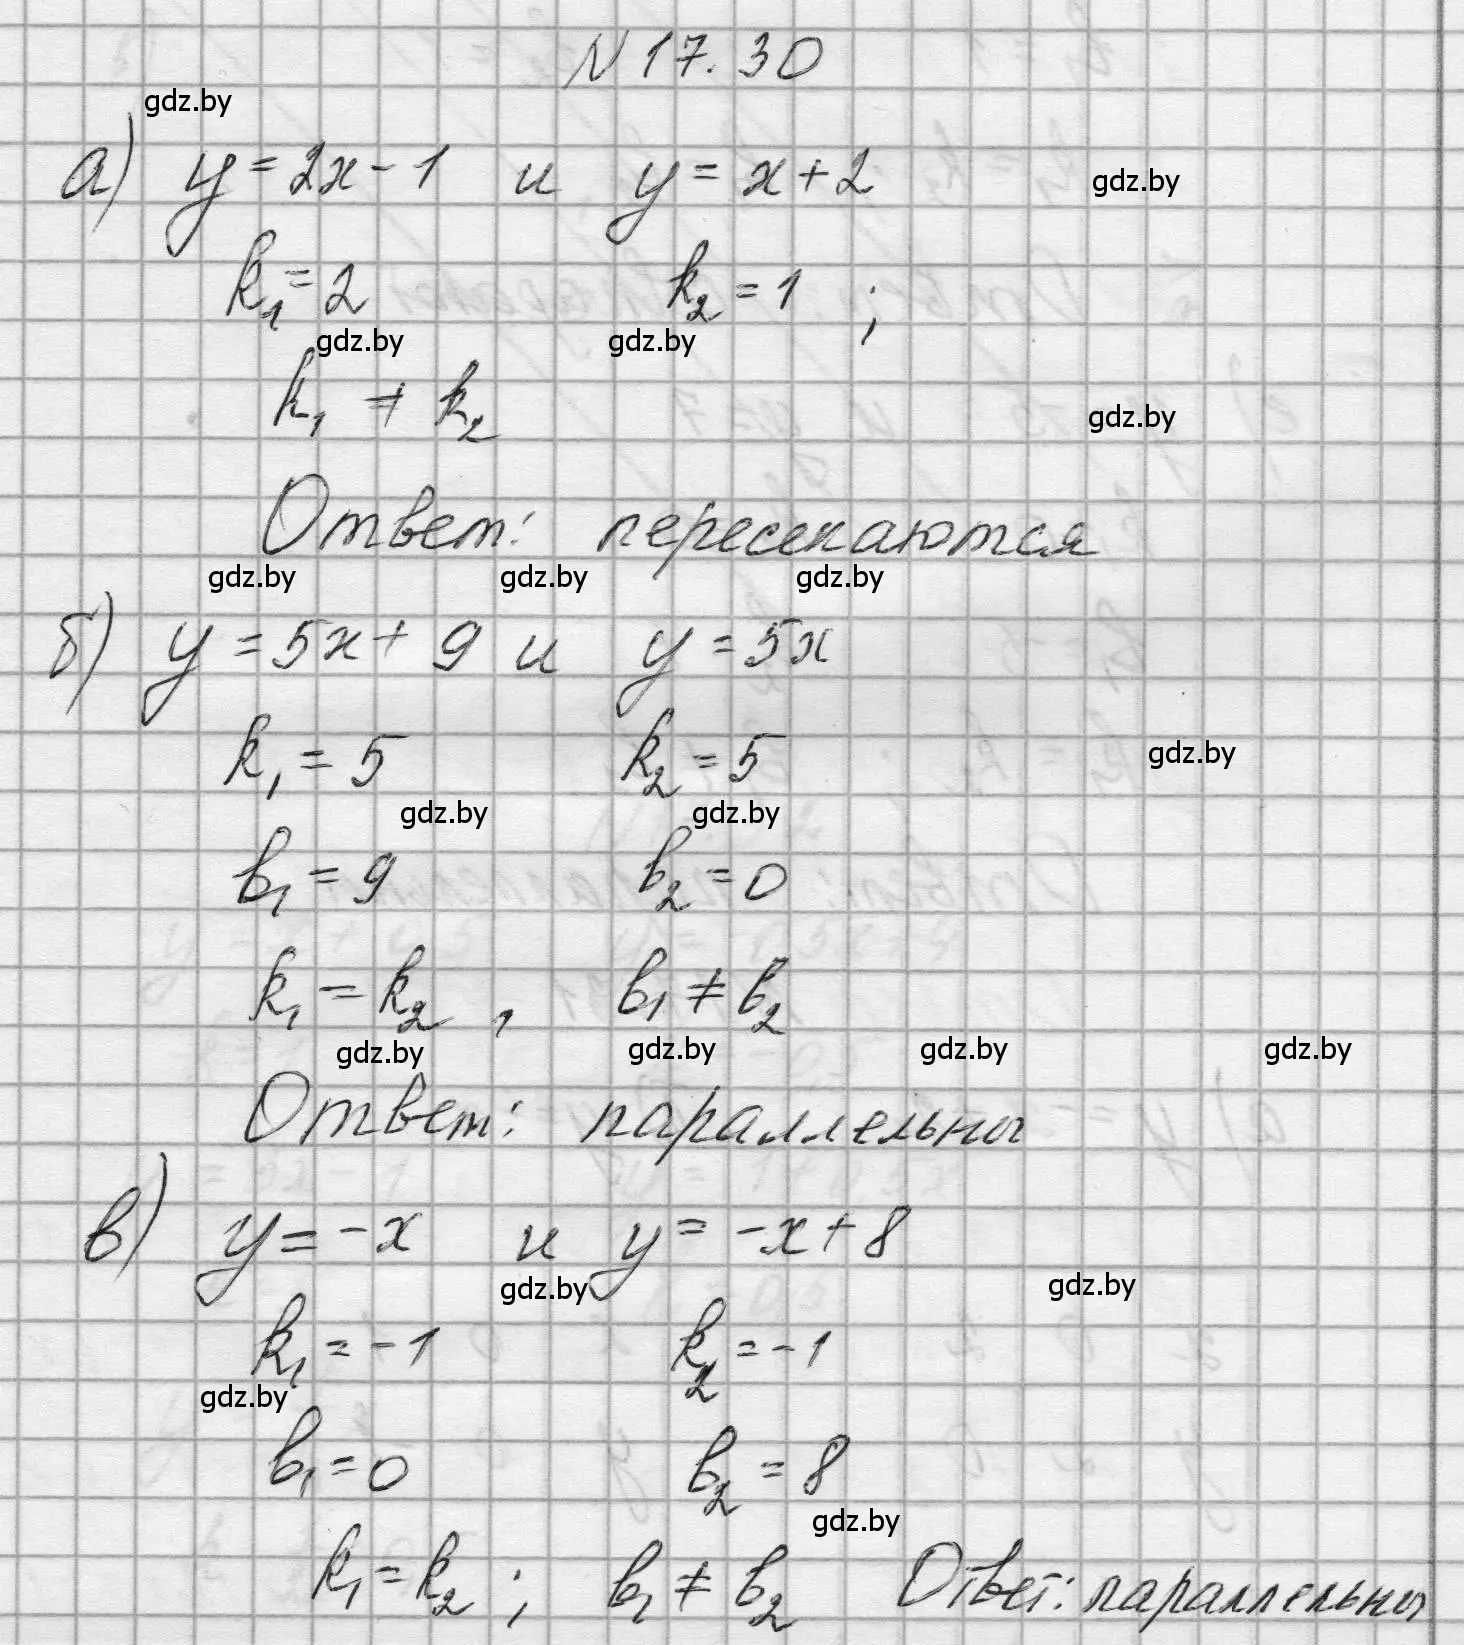 N 17.30
gdz.by
а) y = 2x - 1 и y = x + 2
gdz.by
k₁ = 2 k₂ = 1 ;
gdz.by gdz.by
k₁ ≠ k₂
gdz.by
Ответ: пересекаются
gdz.by gdz.by gdz.by
б) y = 5x + 9 и y = 5x
k₁ = 5 k₂ = 5
gdz.by
gdz.by gdz.by
b₁ = 9 b₂ = 0
k₁ = k₂ , b₁ ≠ b₂
gdz.by gdz.by gdz.by gdz.by
Ответ: параллельны
в) y = -x и y = -x + 8
gdz.by gdz.by
k₁ = -1 k₂ = -1
gdz.by
b₁ = 0 b₂ = 8
gdz.by
k₁ = k₂ ; b₁ ≠ b₂ Ответ: параллельны